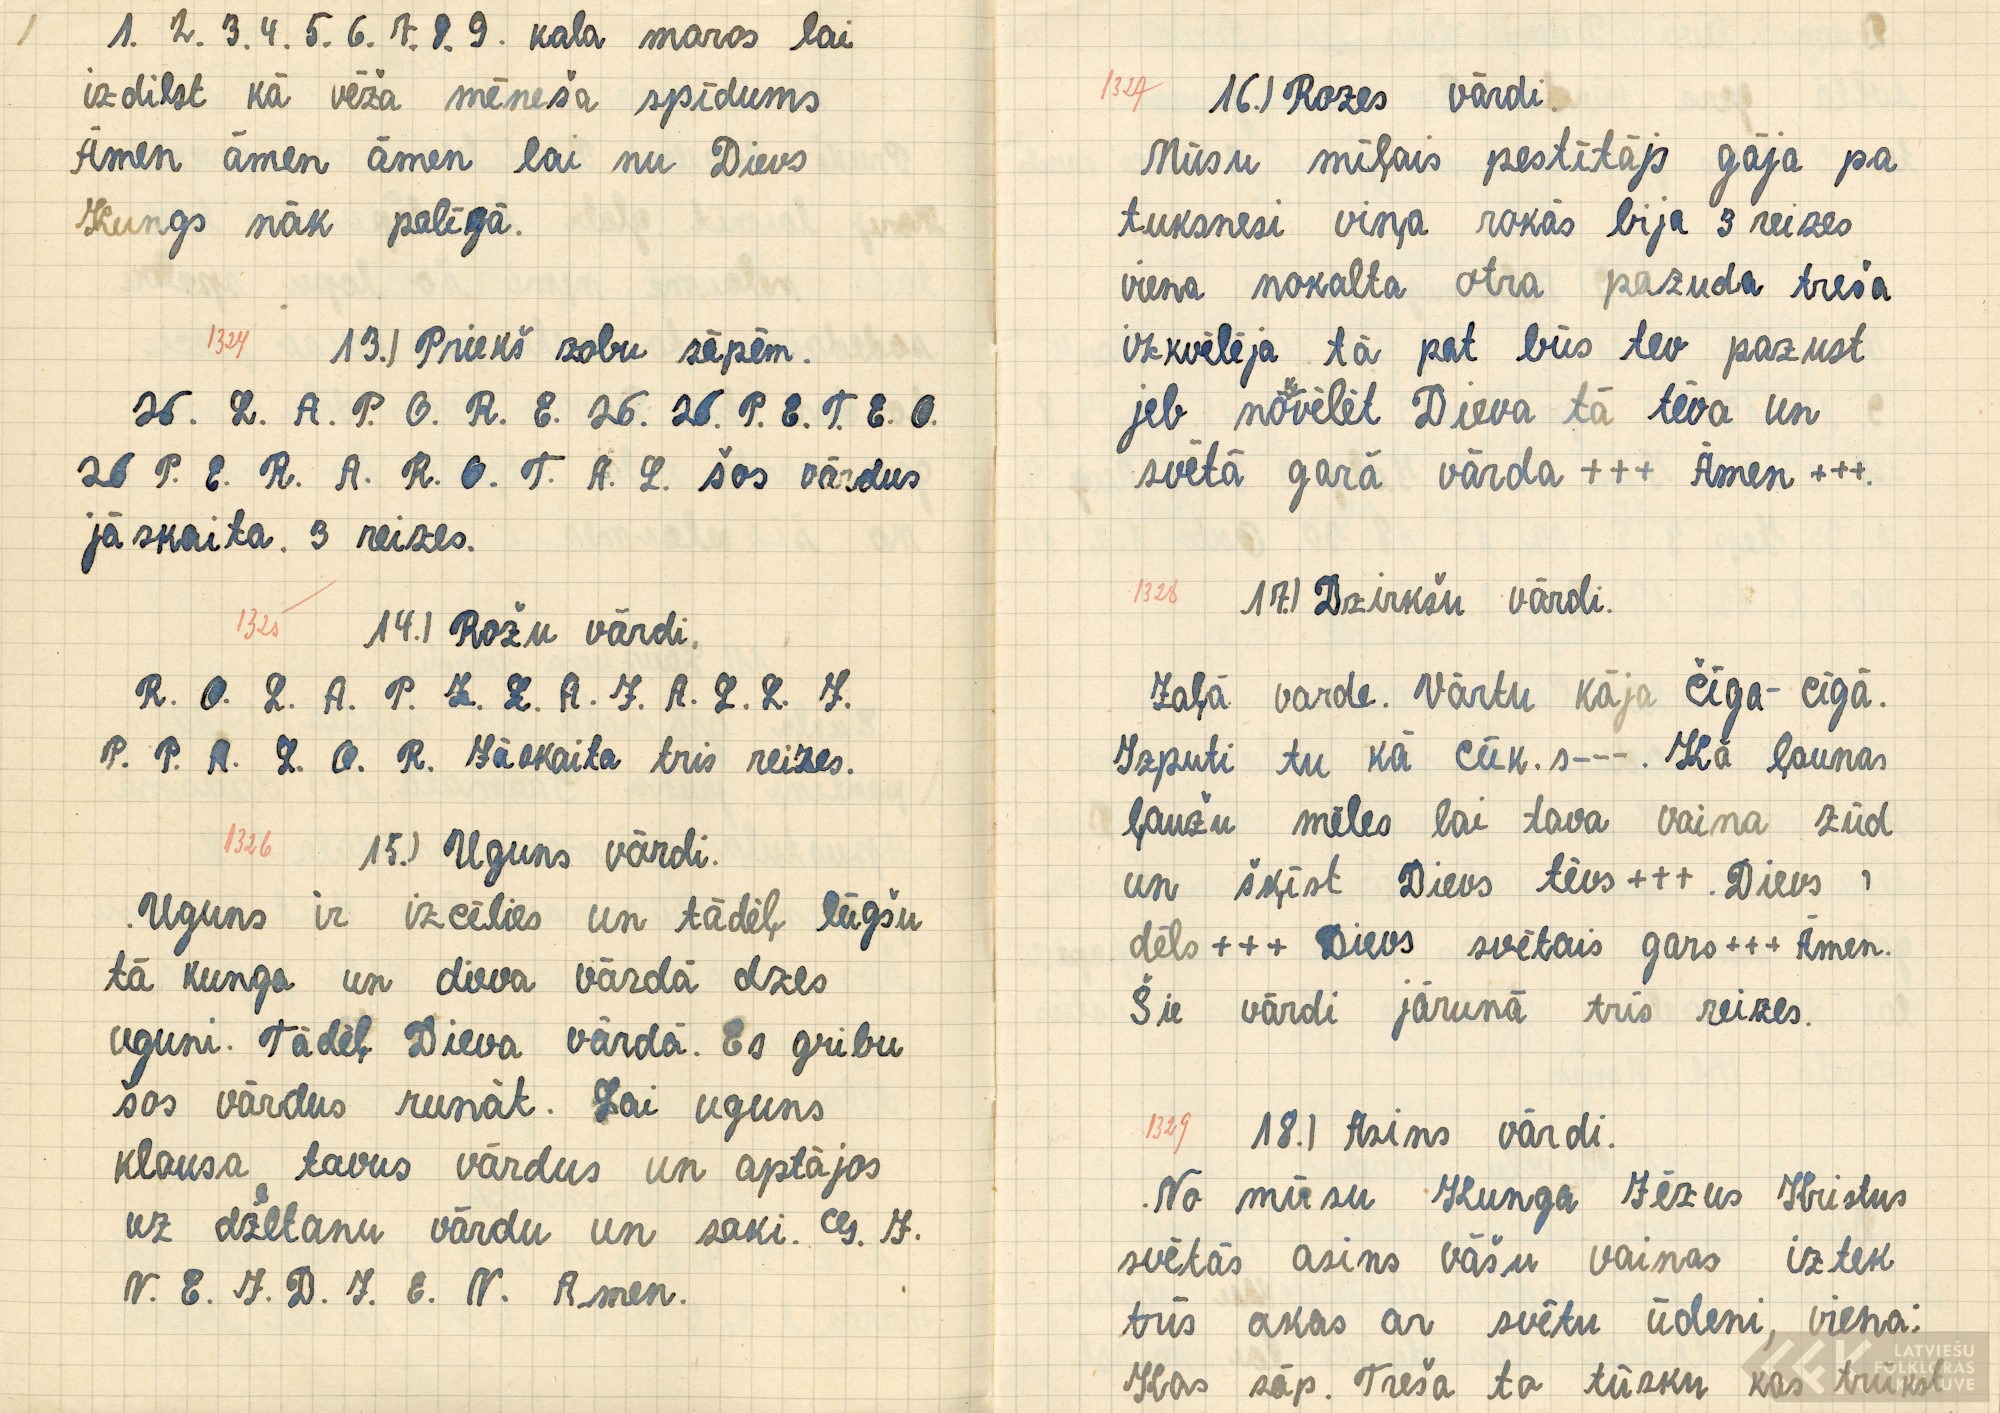 1. 2. 3. 4. 5. 6. 7. 8. 9. kala maros lai
izdilst kā vēža mēneša spīdums
Āmen āmen āmen lai nu Dievs
Kungs nāk palīgā.
1324 13.) Priekš zobu sāpēm.
26. L. A. P. O. R. E. 26. 26. P. E. T. E. O.
26 P. E. R. A. R. O. T. A. L. šos vārdus
jāskaita. 3 reizes.
1325 14.) Rožu vārdi.
R. O. L. A. P. L. L. A. J. A. L. L. J.
P. P. A. L. O. R. Jāskaita tris reizes.
1326 15.) Uguns vārdi.
Uguns ir izcēlies un tādēļ lūgšu
tā kunga un dieva vārdā dzes
uguni. Tādēļ Dieva vārdā. Es gribu
šos vārdus runāt. Lai uguns
klausa tavus vārdus un aptājos
uz vārdu un saki. J.
N. E. J. D. J. E. N. Amen.
1327 16.) Rozes vārdi.
Mūsu mīļais pestītājs gāja pa
tuksnesi viņa rokās bija 3 reizes
viena nokalta otra pazuda treša
izkvēlēja tā pat būs tev pazust
jeb Dieva tā tēva un
svētā garā vārda +++ Āmen +++.
1328 17.) Dzirkšu vārdi.
Zaļā varde. Vārtu kāja čīga - cīgā.
Izputi tu kā cūk. s---. Kā ļaunas
ļaužu mēles lai tava vaina zūd
un šķīst Dievs tēvs +++. Dievs
dēls +++ Dievs svētais gars +++ Āmen.
Šie vārdi jārunā trīs reizes.
1329 18.) Asins vārdi.
No mūsu Kunga Jēzus Kristus
svētās asins vāšu vainas iztek
trīs akas ar svētu ūdeni, viena:
Kas sāp. Treša ta tūsku kas trūkst
LATVIEŠU
FOLKLORAS
KRĀTUVE